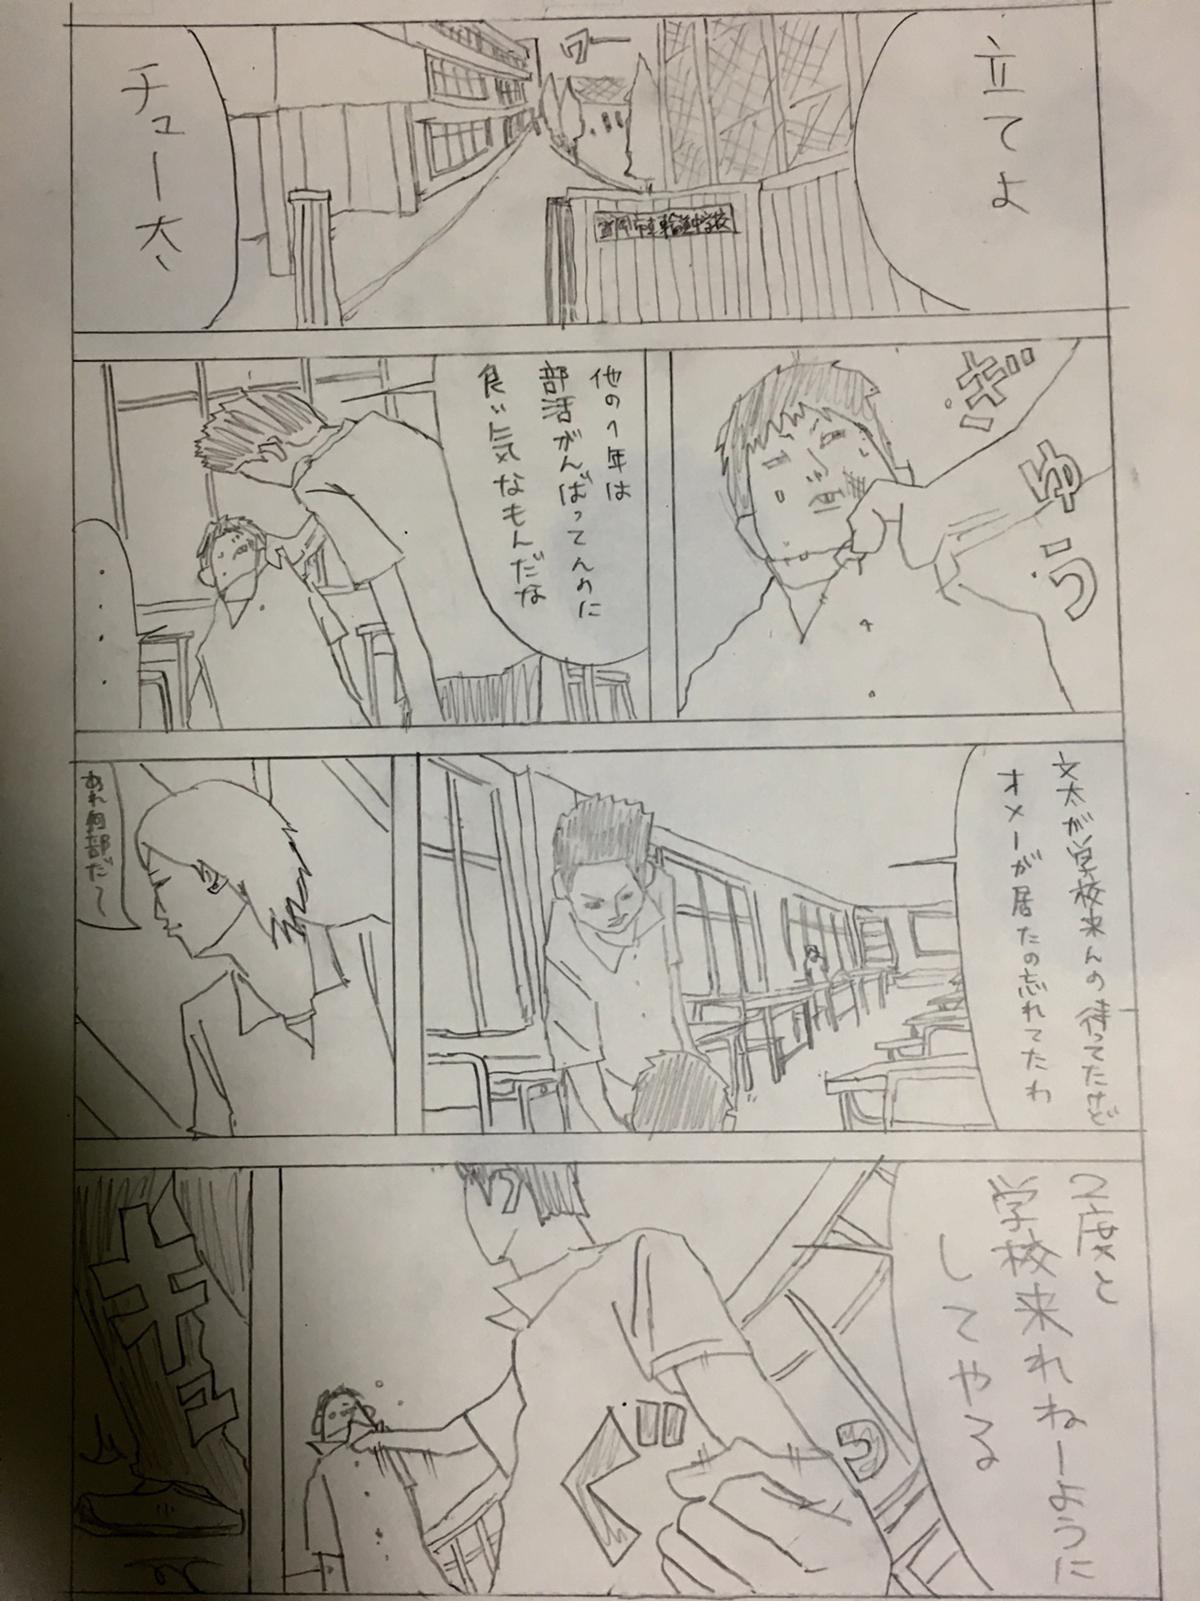 立てよ
ワー
チュー太
ぎ
ゅ
う
他の1年は
部活がんばってんのに
良い気なもんだな
・・・
文太が学校来んの待ってたけど
オメーが居たの忘れてたわ
あれ阿部だ〜
2度と
学校来れねーように
してやる
グ
っ
キュ